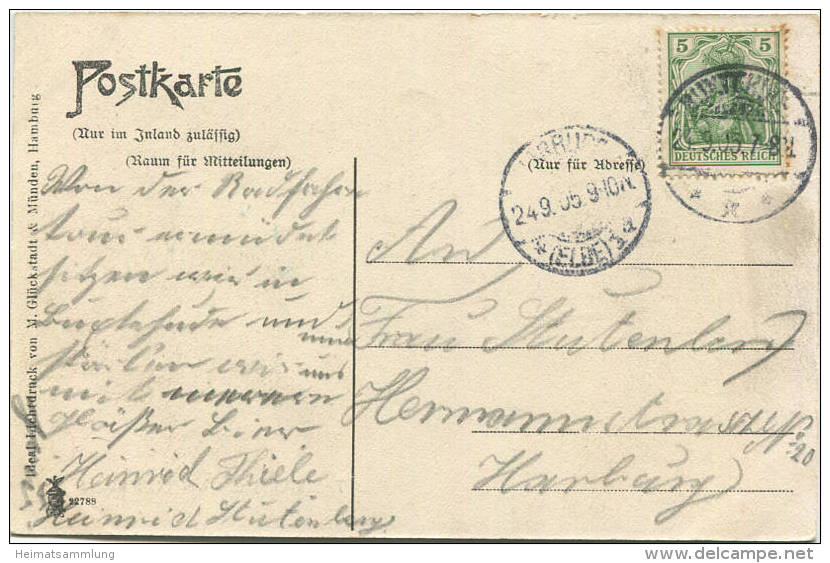 Postkarte
(Nur im Inland zulässig)
(Raum für Mitteilungen)
(Nur für Adresse)
Ideal Lichtdruck von M. Glückstadt & Münden, Hamburg
22788
5 5
DEUTSCHES REICH
24.9.05.9-10N.
(ELBE)
Von der Radfahr
tour ermüdet
sitzen wir in
Buxtehude und
wir uns
mit
Gläser Bier
Heinrich Thiele
Heinrich Stutenberg
An
Frau Stutenberg
Hermannstrasse
Harburg
Heimatsammlung
delcampe.net